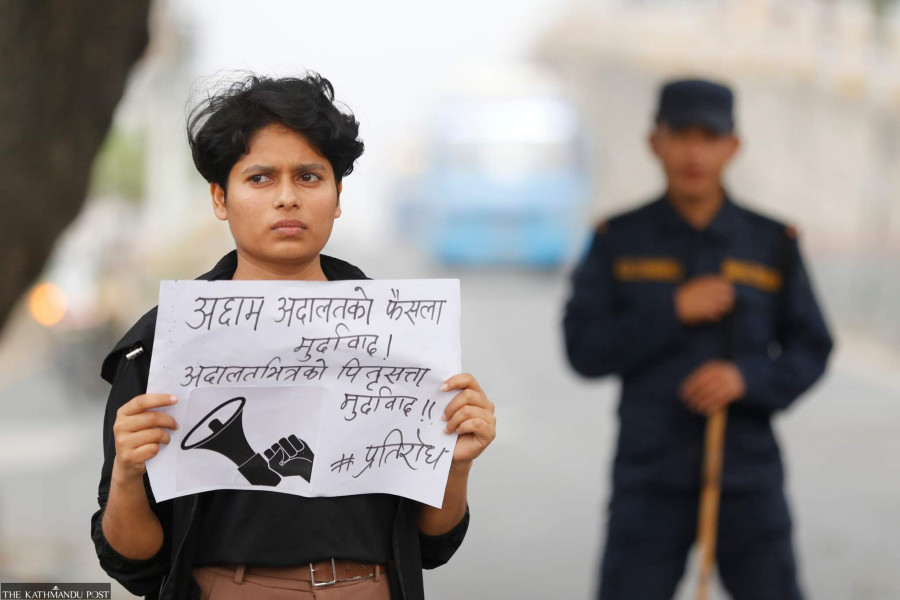 अक्षम अदालतको फैसला
मुर्दावाद!
अदालतभित्रको पितृसत्ता
मुर्दावाद!!
#प्रतिरोध
THE KATHMANDU POST